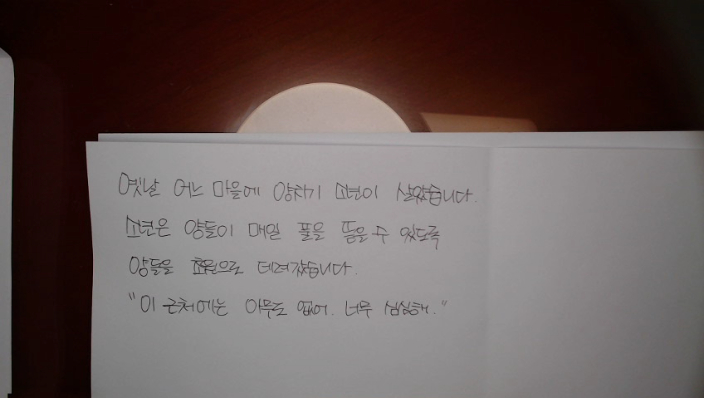 옛날 어느 마을에 양치기 소년이 살았습니다.
소년은 양들이 매일 풀을 뜯을 수 있도록
양들을 초원으로 데려갔습니다.
"이 근처에는 아무도 없어. 너무 심심해."